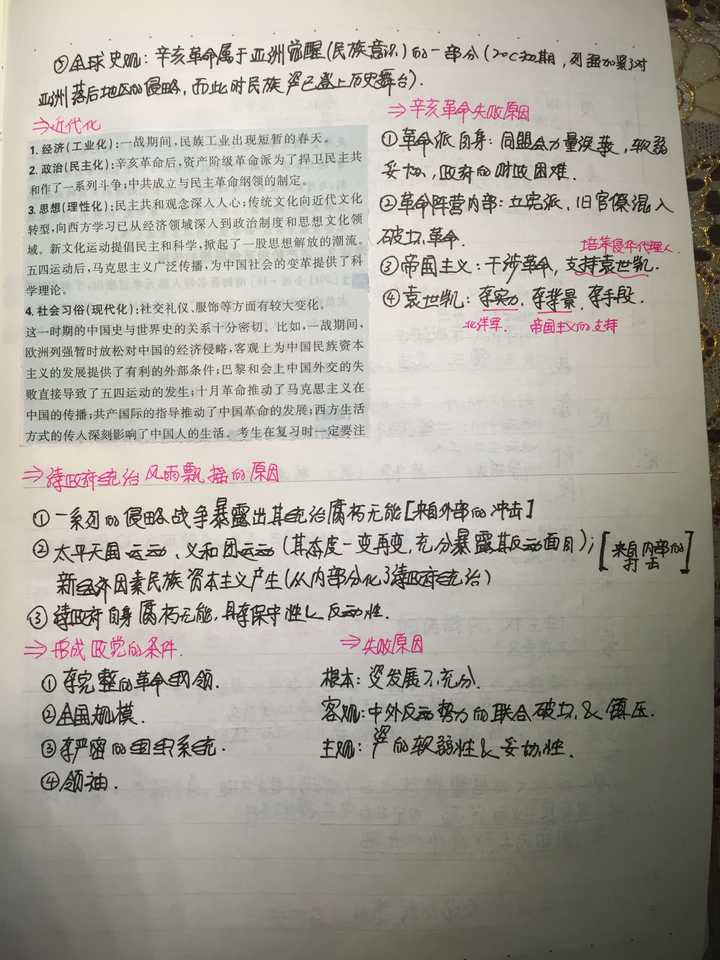 ⑤全球史观：辛亥革命属于亚洲觉醒(民族意识)的一部分(20C初期，列强加紧了对
亚洲落后地区的侵略，而此时民族资已登上历史舞台).
⇒近代化
1. 经济(工业化)：一战期间,民族工业出现短暂的春天。
2. 政治(民主化)：辛亥革命后,资产阶级革命派为了捍卫民主共
和作了一系列斗争;中共成立与民主革命纲领的制定。
3. 思想(理性化)：民主共和观念深入人心;传统文化向近代文化
转型,向西方学习已从经济领域深入到政治制度和思想文化领
域。新文化运动提倡民主和科学,掀起了一股思想解放的潮流。
五四运动后,马克思主义广泛传播,为中国社会的变革提供了科
学理论。
4. 社会习俗(现代化)：社交礼仪、服饰等方面有较大变化。
这一时期的中国史与世界史的关系十分密切。比如,一战期间,
欧洲列强暂时放松对中国的经济侵略,客观上为中国民族资本
主义的发展提供了有利的外部条件;巴黎和会上中国外交的失
败直接导致了五四运动的发生;十月革命推动了马克思主义在
中国的传播;共产国际的指导推动了中国革命的发展;西方生活
方式的传入深刻影响了中国人的生活。考生在复习时一定要注
⇒辛亥革命失败原因
①革命派自身：同盟会力量涣散，软弱
妥协，政府的财政困难.
②革命阵营内部：立宪派、旧官僚混入
破坏革命.
培养侵华代理人.
③帝国主义：干涉革命，支持袁世凯.
④袁世凯：有实力. 有背景. 有手段.
北洋军. 帝国主义的支持
⇒清政府统治风雨飘摇的原因
①一系列的侵略战争暴露出其统治腐朽无能[来自外部的冲击]
②太平天国运动、义和团运动(其态度一变再变，充分暴露其反动面目)；[来自内部的打击]
新经济因素民族资本主义产生(从内部分化了清政府统治)
③清政府自身腐朽无能，具有保守性&反动性.
⇒形成政党的条件.
①有完整的革命纲领.
②全国规模.
③有严密的组织系统.
④领袖.
⇒失败原因
根本：资发展不充分.
客观：中外反动势力的联合破坏&镇压.
主观：资的软弱性&妥协性.